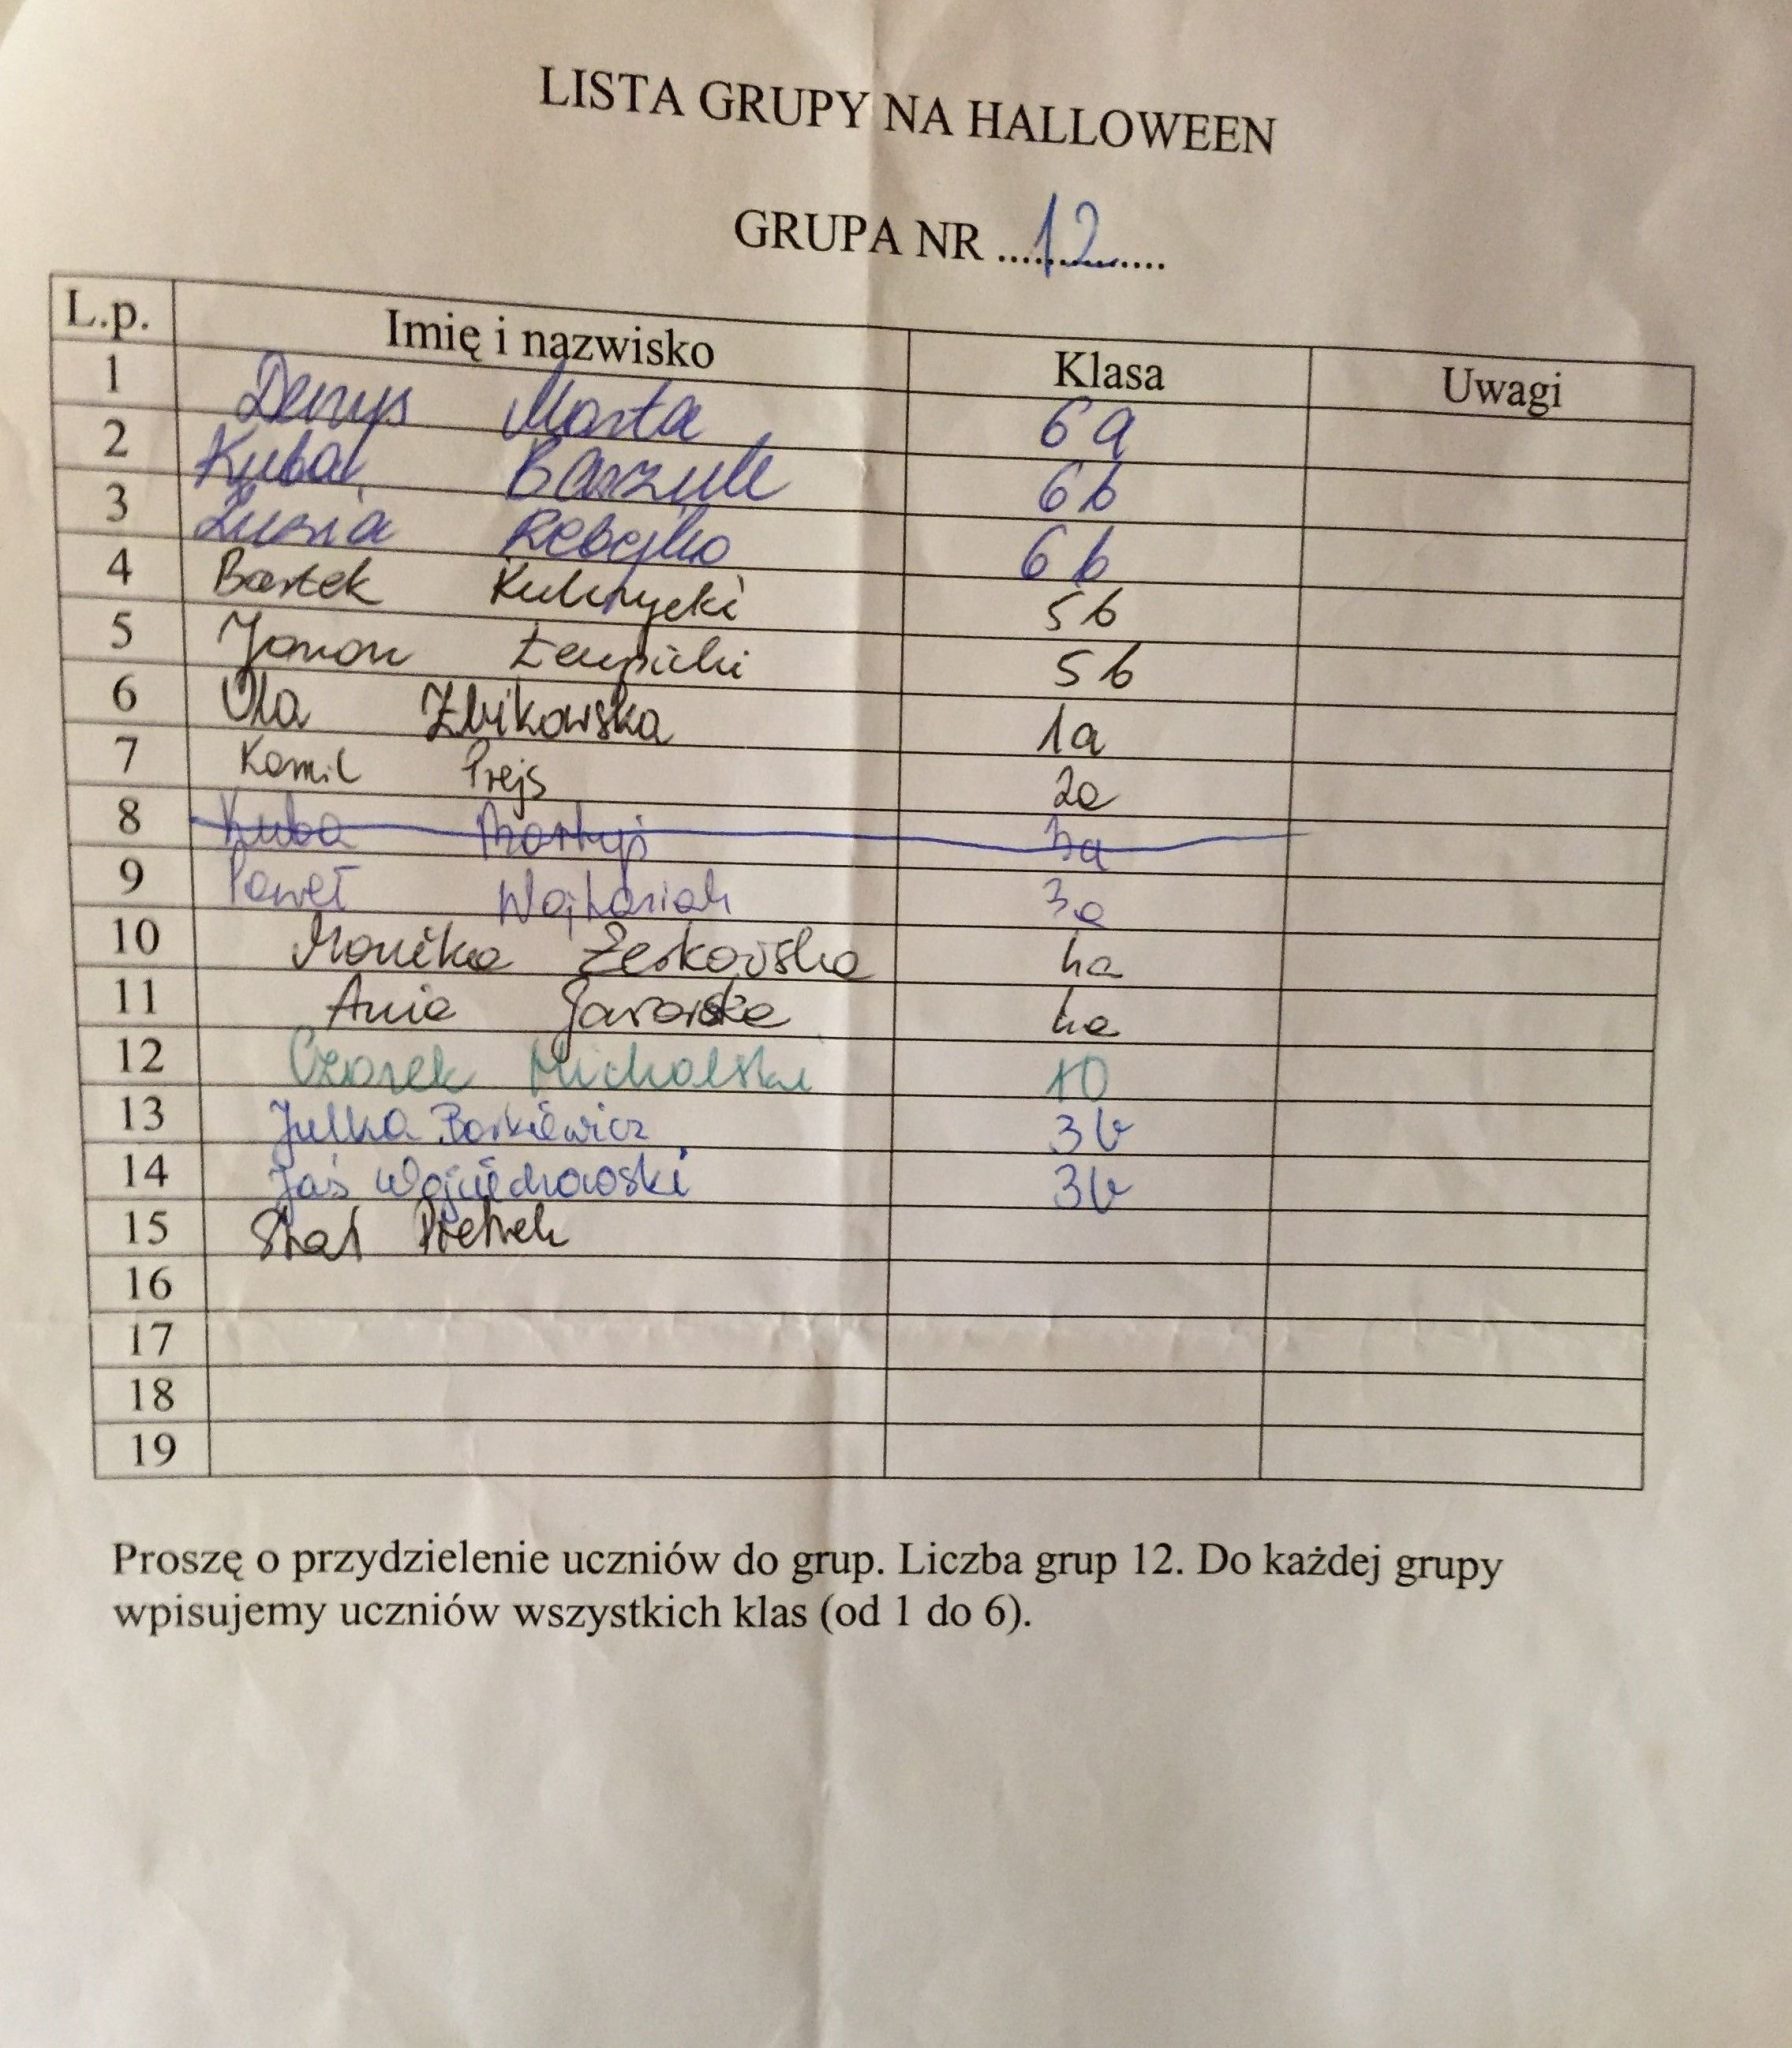 LISTA GRUPY NA HALLOWEEN
GRUPA NR ....12....
L.p. Imię i nazwisko Klasa Uwagi
1 Denys Marta 6a
2 Kuba 6b
3 Zuzia 6b
4 Bartek 5b
5 5b
6 Ola Żbikowska 1a
7 Kamil Prejs 2a
8 Kuba 3a
9 Paweł 3a
10 Monika Żerkowska 4a
11 Ania 4a
12 Czarek Michalski
13 Julka Borkiewicz 3b
14 Jaś Wojciechowski 3b
15 Pietrek
16
17
18
19
Proszę o przydzielenie uczniów do grup. Liczba grup 12. Do każdej grupy
wpisujemy uczniów wszystkich klas (od 1 do 6).